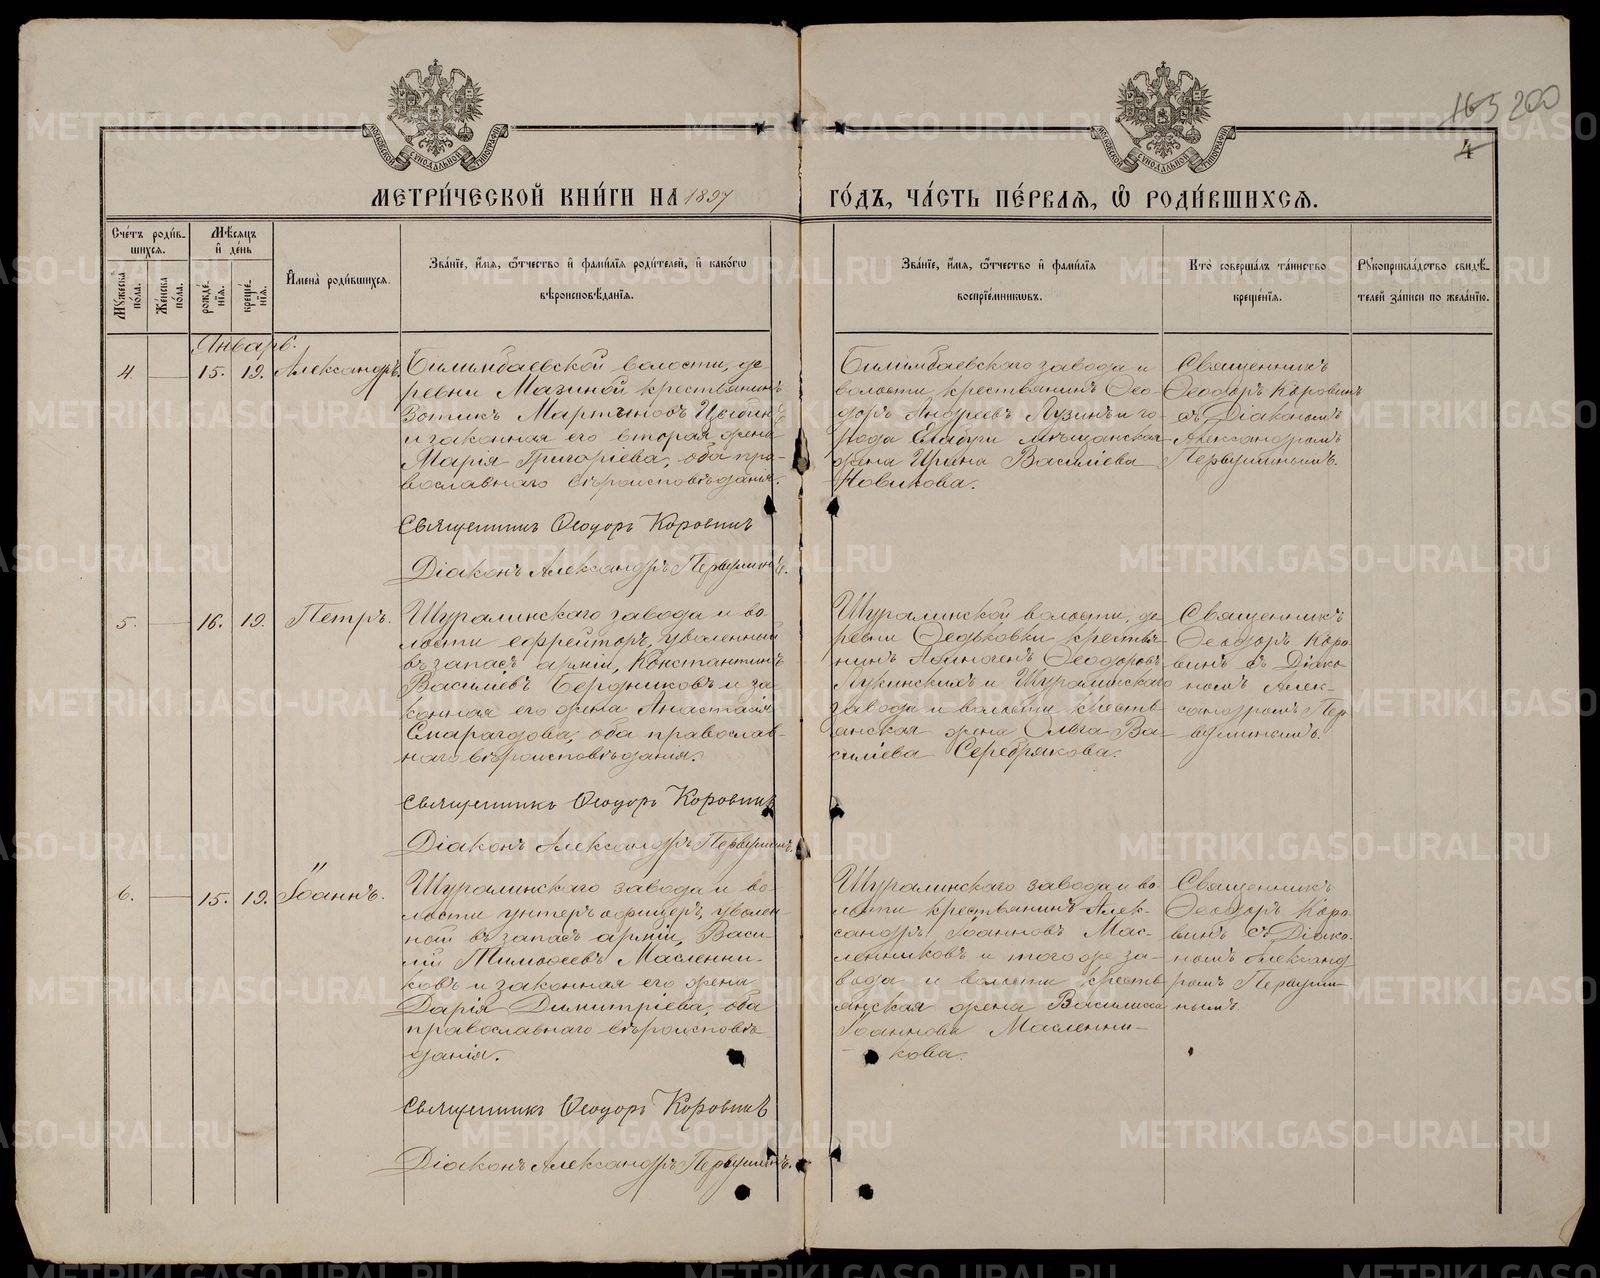 165 200
4
МОСКОВСКОЙ СѴНОДАЛЬНОЙ ТИПОГРАФІИ
МОСКОВСКОЙ СѴНОДАЛЬНОЙ ТИПОГРАФІИ
МЕТРИ́ЧЕСКОЙ КНИ́ГИ НА 1897 ГО́ДЪ, ЧА́СТЬ ПЕ́РВАЯ, Ѽ РОДИ́ВШИХСЯ.
Сче́тъ роди́в-
шихся.
Мѣ́сяцъ
и҆ де́нь
Мꙋ́жеска по́ла.
Же́нска по́ла.
рожде́нїя.
креще́нїя.
И҆мена̀ роди́вшихся.
Зва́нїе, и҆́мя, ѻ҆́тчество и҆ фами́лїя роди́телей, и҆ како́гѡ
вѣроисповѣ́данїя.
Зва́нїе, и҆́мя, ѻ҆́тчество и҆ фами́лїя
воспрїе́мниковъ.
Кто̀ соверша́лъ та́инство
креще́нїя.
Рꙋкоприкла́дство свидѣ́-
телей за́писи по жела́нїю.
Январь.
4.
15.
19.
Александръ.
Билимбаевской волости, де
ревни Мазиной крестьянинъ
Зотикъ Мартиновъ
и законная его вторая жена
Марія Григоріева, оба пра-
вославнаго вѣроисповѣданія.
Священникъ Ѳеодоръ Коровинъ
Діаконъ Александръ Первушинъ.
Билимбаевскаго завода и
волости крестьянинъ Ѳео-
доръ Андреевъ Лузинъ и го-
рода Елабуги мѣщанская
жена Ирина Василіева
Новикова.
Священникъ
Ѳеодоръ Коровинъ
съ Діакономъ
Александромъ
Первушинымъ.
5.
16.
19.
Петръ.
Шуралинскаго завода и во-
лости ефрейторъ, уволенный
въ запасъ арміи, Константинъ
Василіевъ Бердниковъ и за-
конная его жена Анастасія
Смарагдова, оба православ-
наго вѣроисповѣданія.
Священникъ Ѳеодоръ Коровинъ
Діаконъ Александръ Первушинъ.
Шуралинской волости, де
ревни Ѳедьковки крестья-
нинъ Аѳиногенъ Ѳеодоровъ
Лукинскихъ и Шуралинскаго
завода и волости кресть-
янская жена Ольга Ва-
силіева Серебрякова.
Священникъ
Ѳеодоръ Коро-
винъ съ Діако
номъ Алек-
сандромъ Пер
вушинымъ.
6.
15.
19.
Іоаннъ.
Шуралинскаго завода и во-
лости унтеръ офицеръ, уволен-
ной въ запасъ арміи, Васи-
лій Тимоѳеевъ Масленни-
ковъ и законная его жена
Дарія Димитріева, оба
православнаго вѣроисповѣ
данія.
Священникъ Ѳеодоръ Коровинъ
Діаконъ Александръ Первушинъ.
Шуралинскаго завода и во-
лости крестьянинъ Алек-
сандръ Іоанновъ Мас-
ленниковъ и того же за-
вода и волости кресть-
янская жена Василиса
Іоаннова Масленни-
кова.
Священникъ
Ѳеодоръ Коро-
винъ съ Діако-
номъ Александ
ромъ Первуши-
нымъ.
METRIKI.GASO-URAL.RU